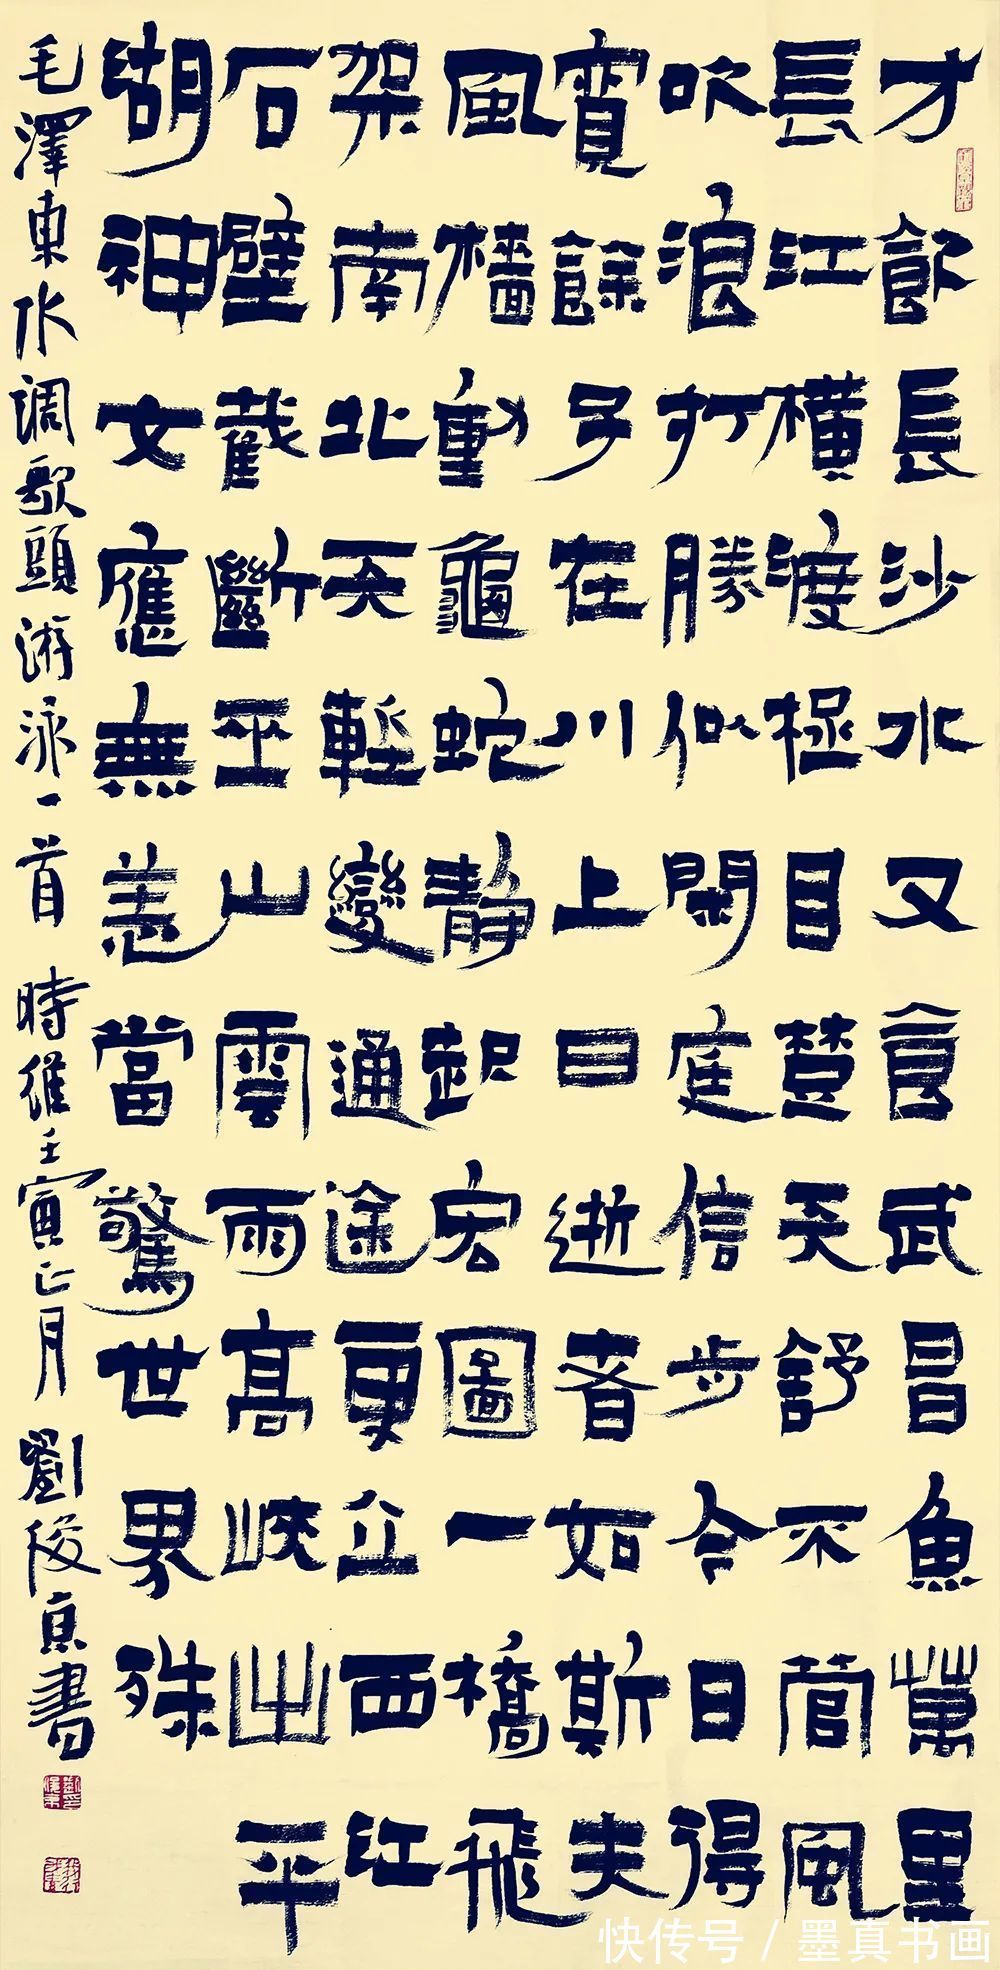 才飲長沙水又食武昌魚萬里
長江橫渡極目楚天舒不管風
吹浪打勝似閑庭信步今日得
寬餘子在川上曰逝者如斯夫
風檣動龜蛇静起宏圖一橋飛
架南北天塹變通途更立西江
石壁截斷巫山雲雨高峽出平
湖神女應無恙當驚世界殊
毛澤東水調歌頭游泳一首 時維壬寅正月 劉俊京書
快传号 / 墨真书画